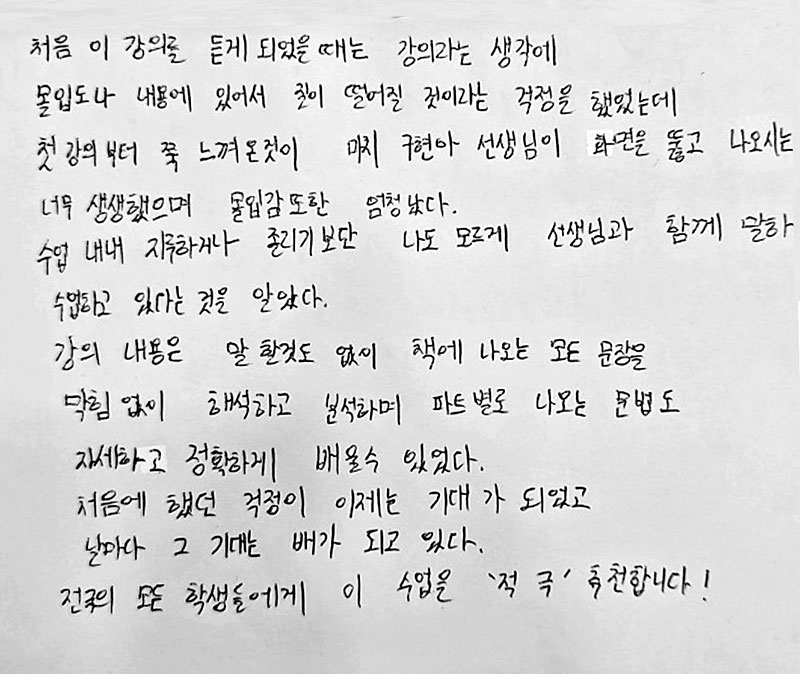 처음 이 강의를 듣게 되었을 때는 강의라는 생각에
몰입도나 내용에 있어서 질이 떨어질 것이라는 걱정을 했었는데
첫 강의부터 쭉 느껴온것이 마치 구현아 선생님이 화면을 뚫고 나오시는
너무 생생했으며 몰입감 또한 엄청났다.
수업 내내 지루하거나 졸리기보단 나도 모르게 선생님과 함께 말하
수업하고 있다는 것을 알았다.
강의 내용은 말 할것도 없이 책에 나오는 모든 문장을
막힘 없이 해석하고 분석하며 파트별로 나오는 문법도
자세하고 정확하게 배울수 있었다.
처음에 했던 걱정이 이제는 기대가 되었고
날마다 그 기대는 배가 되고 있다.
전국의 모든 학생들에게 이 수업을 '적극' 추천합니다!